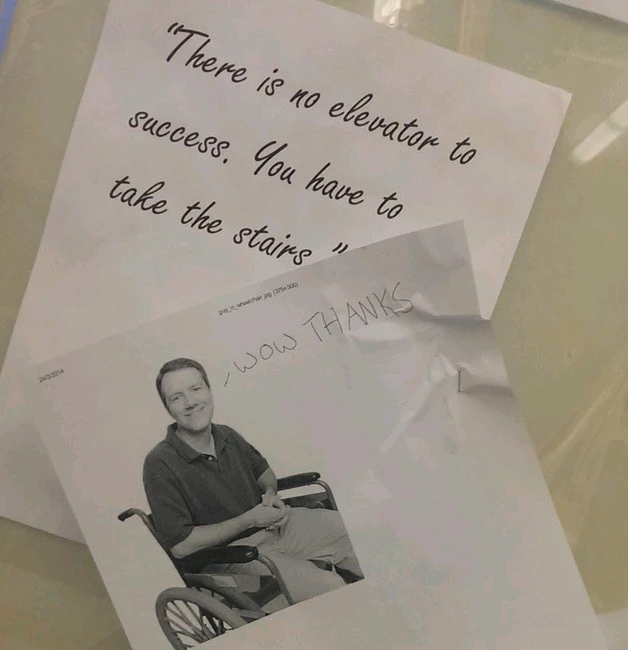 "There is no elevator to
success. You have to
take the stairs."
guy_in_wheelchair.jpg (375×500)
WOW THANKS